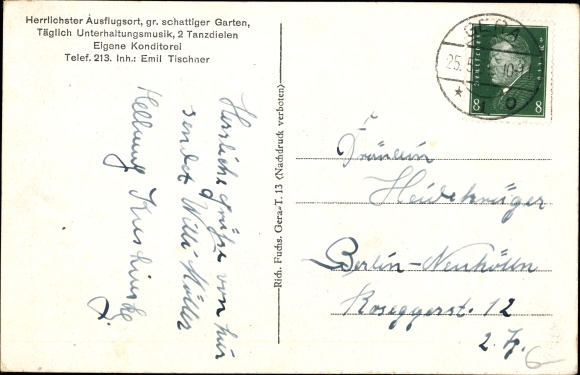 Herrlichster Ausflugsort, gr. schattiger Garten,
Täglich Unterhaltungsmusik, 2 Tanzdielen
Eigene Konditorei
Telef. 213. Inh.: Emil Tischner
Herzliche Grüße von hier
sendet Willi Müller
Hellmug
Rich. Fuchs, Gera-T. 13 (Nachdruck verboten)
GERA
25.5.
8 8
Fräulein
Heidekrüger
Berlin-Neukölln
Roseggerst. 12
2. Tr.
6